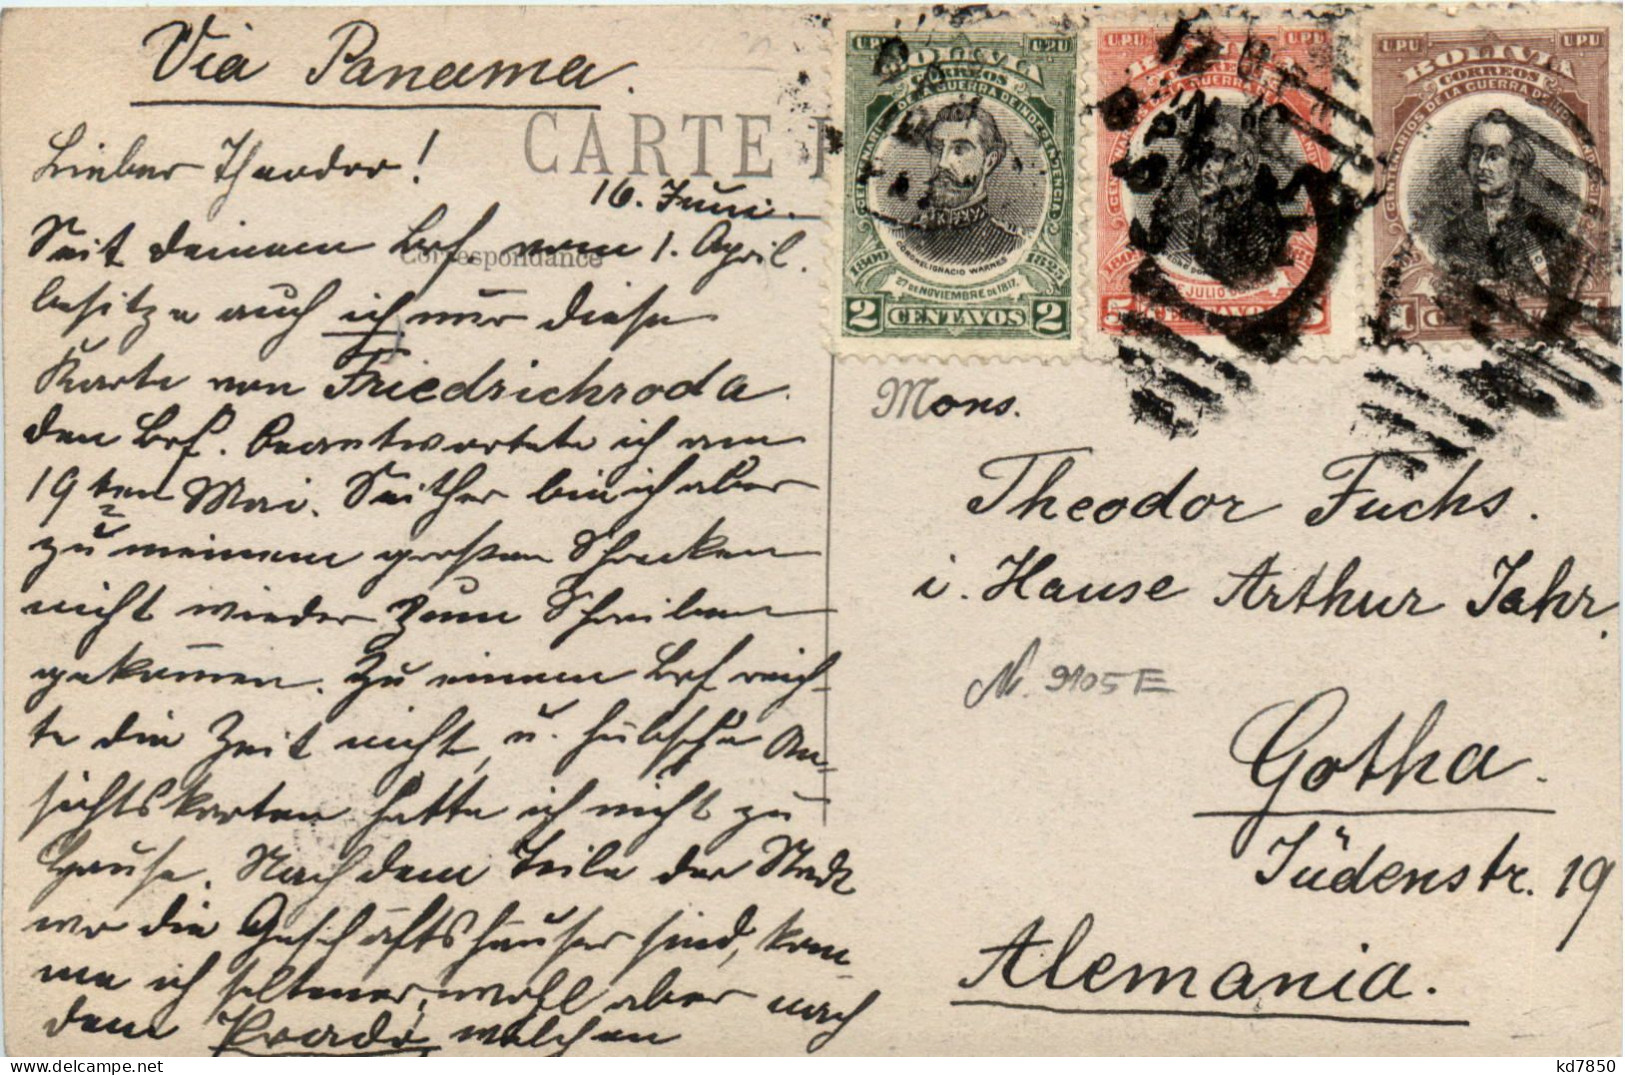 Via Panama.
CARTE P
Correspondance
Lieber Theodor!
16. Juni.
Seit deinem Brf. vom 1. April.
besitze auch ich nur diese
Karte von Friedrichroda.
den Brf. Beantwortete ich am
19ten Mai. Seither bin ich aber
zu meinem großen Schrecken
nicht wieder zum Schreiben
gekom̄en. Zu einem Brf reich-
te die Zeit nicht, u. hübsche An-
sichtskarten hatte ich nicht zu
Hause. Nach dem Teile der Stadt
wo die Geschäftshäuser sind, kom-
me ich seltener, wohl aber nach
dem Prado, welchen
UPU BOLIVIA UPU
CORREOS
CENTENARIOS DE LA GUERRA DE INDEPENDENCIA
CORONEL IGNACIO WARNES
1809 1825
27 DE NOVIEMBRE DE 1817.
2 CENTAVOS 2
U.P.U. U.P.U.
GUERRA
JULIO
5 CENTAVOS 5
UPU BOLIVIA UPU
CORREOS
CENTENARIOS DE LA GUERRA DE
1809
1
Mons.
Theodor Fuchs.
i. Hause Arthur Jahr.
N. 9105 E
Gotha.
Jüdenstr. 19
Alemania.
kd7850